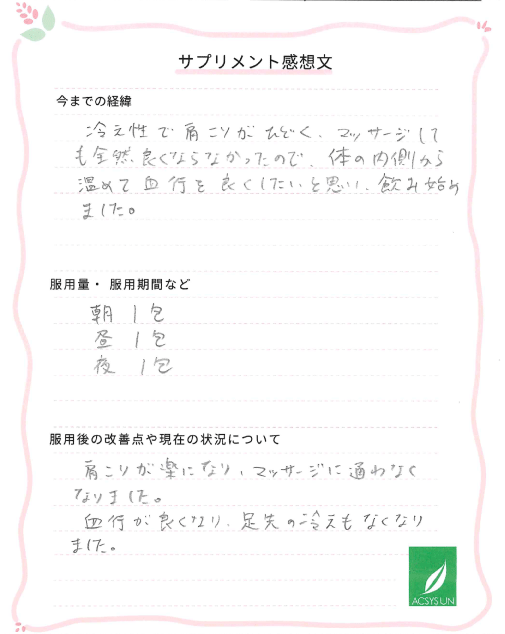 サプリメント感想文
今までの経緯
冷え性で肩こりがひどく、マッサージして
も全然良くならなかったので、体の内側から
温めて血行を良くしたいと思い、飲み始め
ました。
服用量・服用期間など
朝 1包
昼 1包
夜 1包
服用後の改善点や現在の状況について
肩こりが楽になり、マッサージに通わなく
なりました。
血行が良くなり、足先の冷えもなくなり
ました。
ACSYSUN